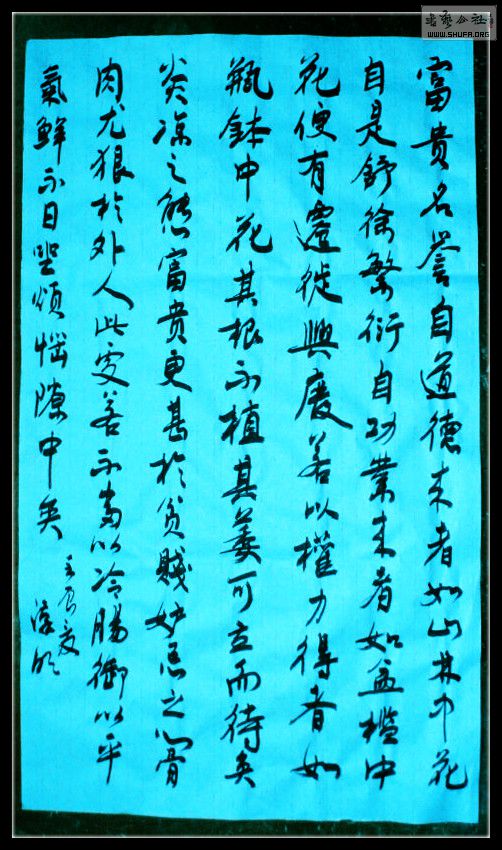 富貴名譽自道德来者如山林中花
自是舒徐繁衍自功業来者如盆檻中
花便有遷徙興廢若以權力得者如
瓶鉢中花其根不植其萎可立而待矣
炎凉之態富貴更甚於貧賤妒忌之心骨
肉尤狠於外人此處若不當以冷腸御以平
氣鮮不日坐煩惱障中矣
書藝公社
WWW.SHUFA.ORG